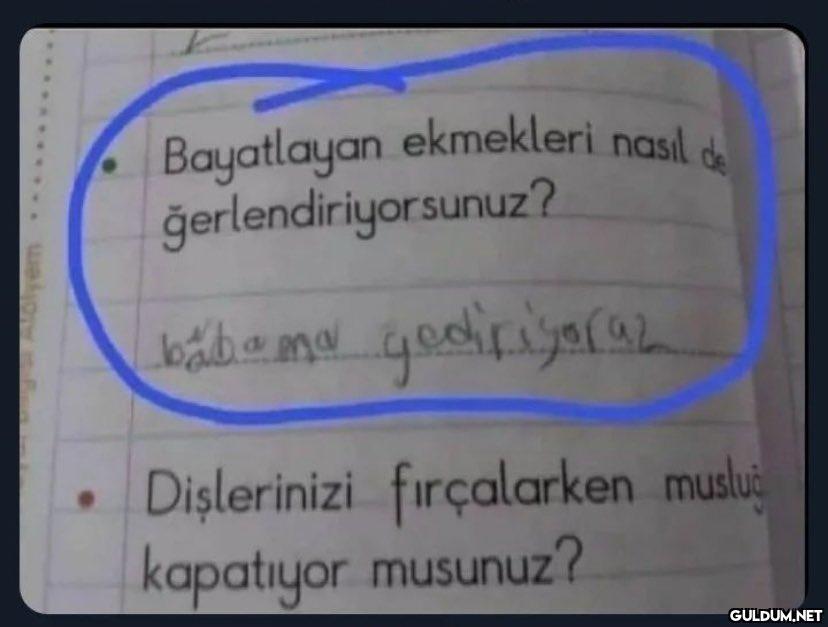 Bayatlayan ekmekleri nasıl de
ğerlendiriyorsunuz?
babama yediriyoruz
Dişlerinizi fırçalarken musluğ
kapatıyor musunuz?
GULDUM.NET